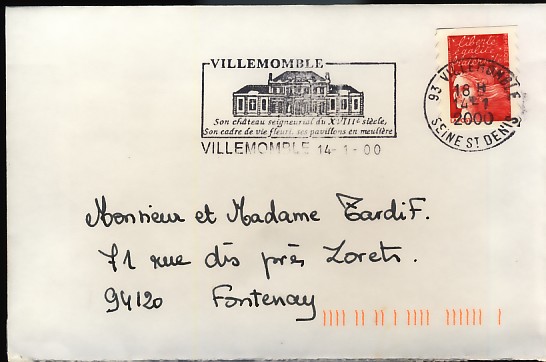 VILLEMOMBLE
Son château seigneurial du XVIIIe siècle,
Son cadre de vie fleuri, ses pavillons en meulière
VILLEMOMBLE 14-1-00
liberté
égalité
fraternité
93 VILLEMOMBLE
18 H
14-1
2000
SEINE ST DENIS
Monsieur et Madame Tardif.
71 rue des près Lorets.
94120 Fontenay